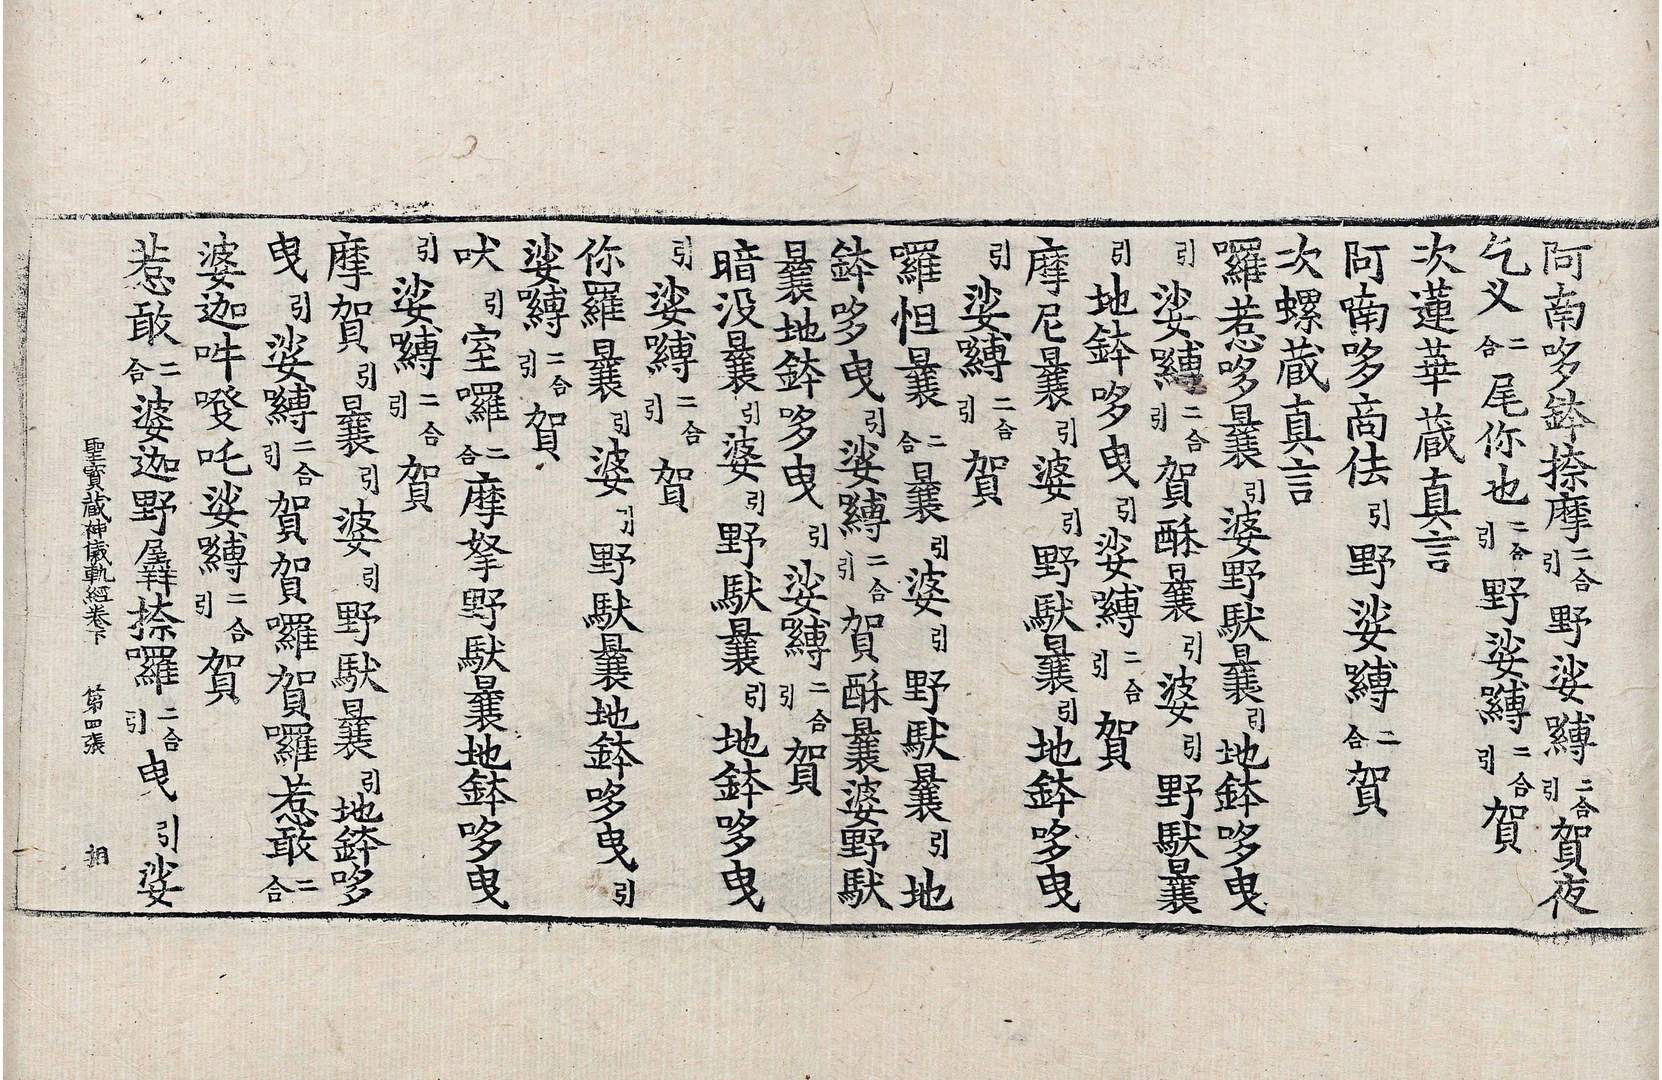 阿喃哆鉢捺摩二合引野娑嚩二合引賀夜
乞义二合尾你也二合引野娑嚩二合引賀
次蓮華蔵真言
阿喃哆商佉引野娑嚩二合賀
次螺蔵真言
囉惹哆曩引婆野馱曩引地鉢哆曳
引娑嚩二合引賀酥曩引婆引野馱曩
引地鉢哆曳引娑嚩二合引賀
摩尼曩引婆引野馱曩引地鉢哆曳
引娑嚩二合引賀
囉怛曩二合曩引婆引野馱曩引地
鉢哆曳引娑嚩二合引賀酥曩婆野馱
曩地鉢哆曳引娑嚩二合引賀
暗没曩引婆引野馱曩引地鉢哆曳
引娑嚩二合引賀
你羅曩引婆引野馱曩地鉢哆曳引
娑嚩二合引賀
吠引室囉二合摩拏野馱曩地鉢哆曳
引娑嚩二合引賀
摩賀引曩引婆引野馱曩引地鉢哆
曳引娑嚩二合引賀賀囉賀囉惹敢二合
婆迦吽發吒娑嚩二合引賀
惹敢二合婆迦野𡱝捺囉二合引曳引娑
聖寳蔵神儀軌經卷下 第四張 翔